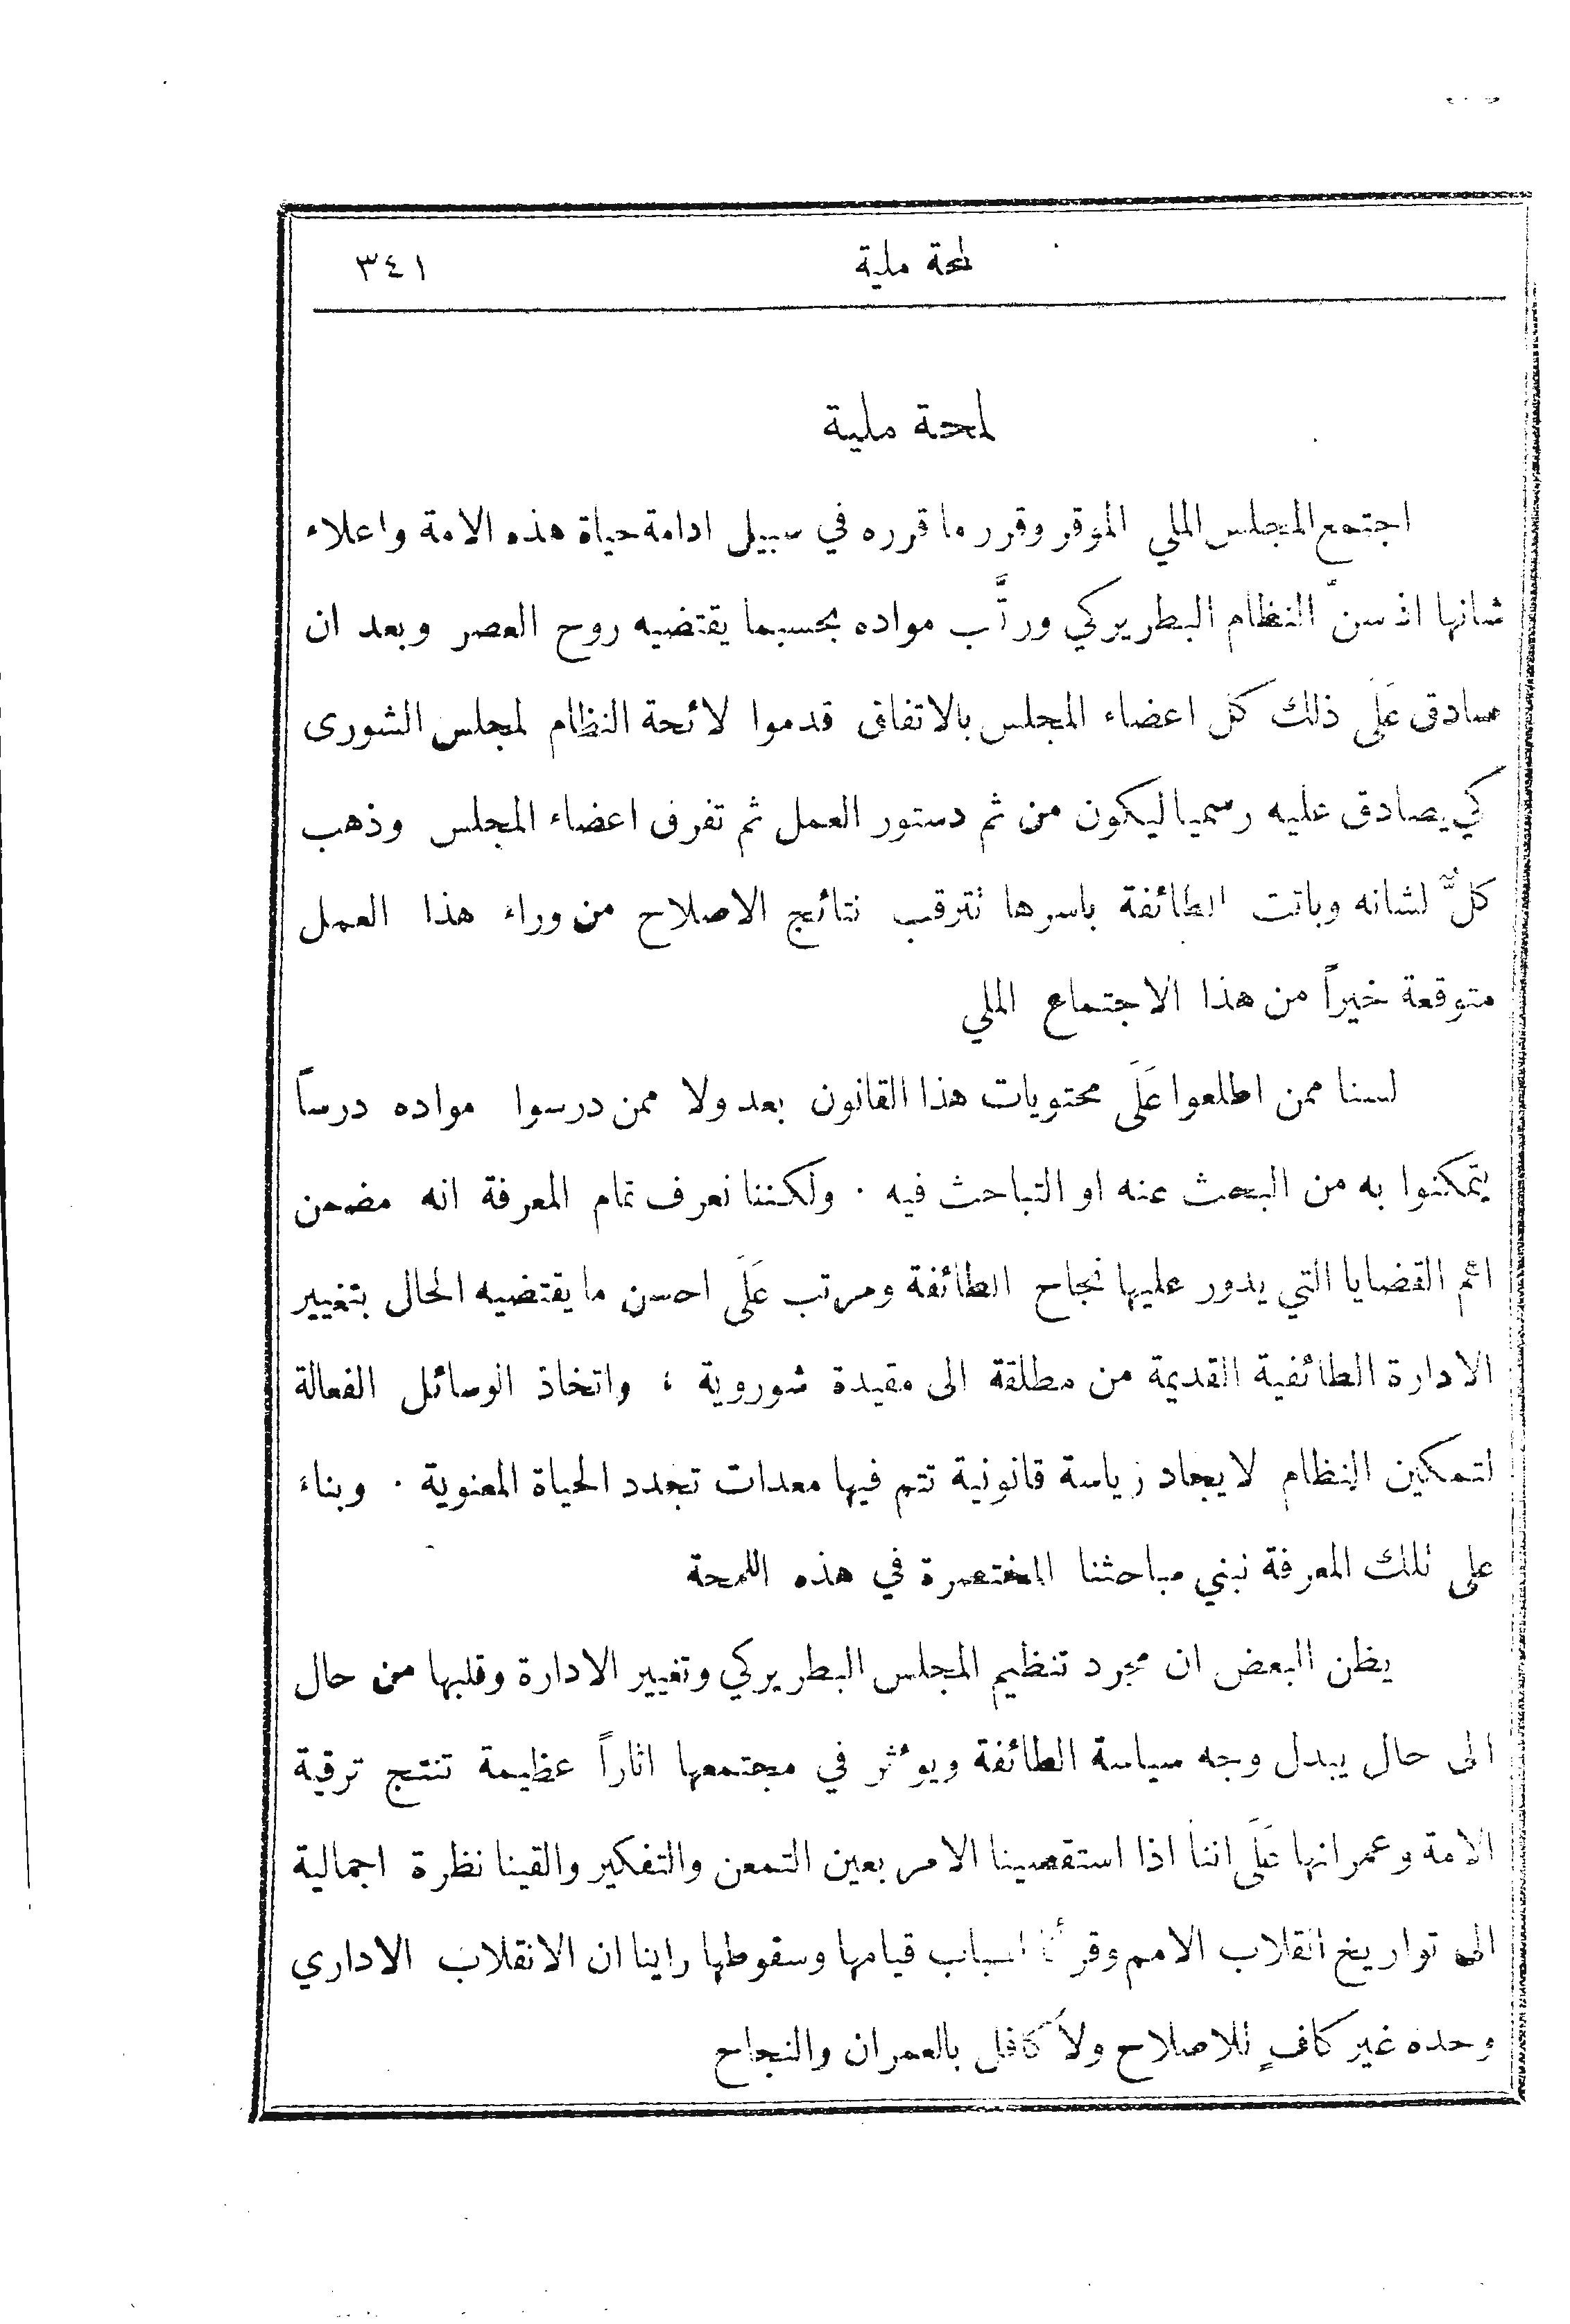 لمحة ملية ٣٤١
لمحة ملية
اجتمع المجلس الملي الموقر وقرر ما قرره في سبيل ادامة حياة هذه الامة واعلاء
شانها اذ سنَّ النظام البطريركي ورتَّب مواده بحسبما يقتضيه روح العصر وبعد ان
صادق عَلَى ذلك كل اعضاء المجلس بالاتفاق قدموا لائحة النظام لمجلس الشورى
كي يصادق عليه رسميا ليكون من ثم دستور العمل ثم تفرق اعضاء المجلس وذهب
كلٌّ لشانه وباتت الطائفة باسرها تترقب نتائج الاصلاح من وراء هذا العمل
متوقعة خيراً من هذا الاجتماع الملي
لسنا ممن اطلعوا عَلَى محتويات هذا القانون بعد ولا ممن درسوا مواده درساً
يتمكنوا به من البحث عنه او التباحث فيه ٠ ولكننا نعرف تمام المعرفة انه مضمن
اهم القضايا التي يدور عليها نجاح الطائفة ومرتب عَلَى احسن ما يقتضيه الحال بتغيير
الادارة الطائفية القديمة من مطلقة الى مقيدة شوروية ، واتخاذ الوسائل الفعالة
لتمكين النظام لايجاد رياسة قانونية تتم فيها معدات تجدد الحياة المعنوية ٠ وبناء
على تلك المعرفة نبني مباحثنا المختصرة في هذه اللمحة
يظن البعض ان مجرد تنظيم المجلس البطريركي وتغيير الادارة وقلبها من حال
الى حال يبدل وجه سياسة الطائفة ويؤثر في مجتمعها اثاراً عظيمة تنتج ترقية
الامة وعمرانها عَلَى اننا اذا استقصينا الامر بعين التمعن والتفكير والقينا نظرة اجمالية
الى تواريخ انقلاب الامم وقرأنا اسباب قيامها وسقوطها راينا ان الانقلاب الاداري
وحده غير كافٍ للاصلاح ولا كافل بالعمران والنجاح